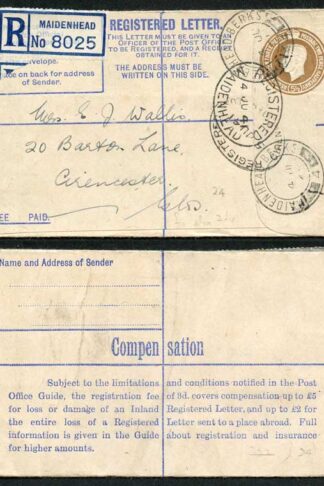 MAIDENHEAD
R
No 8025
REGISTERED LETTER.
THIS LETTER MUST BE GIVEN TO AN
OFFICER OF THE POST OFFICE
TO BE REGISTERED, AND A RECEIPT
OBTAINED FOR IT.
THE ADDRESS MUST BE
WRITTEN ON THIS SIDE.
envelope.
ce on back for address
of Sender.
REGISTERED
MAIDENHEAD
4 JU
MAIDENHEAD
Mrs. E. J. Wallis
20 Barton Lane,
Cirencester,
Glos.
24
EE PAID.
Name and Address of Sender
Compen sation
Subject to the limitations and conditions notified in the Post
Office Guide, the registration fee of 3d. covers compensation up to £5
for loss or damage of an Inland Registered Letter, and up to £2 for
the entire loss of a Registered Letter sent to a place abroad. Full
information is given in the Guide about registration and insurance
for higher amounts.